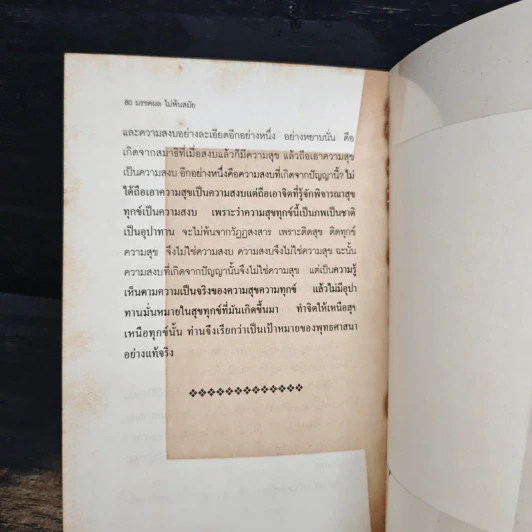 80 มรรคผล ไม่พ้นสมัย
และความสงบอย่างละเอียดอีกอย่างหนึ่ง อย่างหยาบนั่น คือ
เกิดจากสมาธิที่เมื่อสงบแล้วก็มีความสุข แล้วถือเอาความสุข
เป็นความสงบ อีกอย่างหนึ่งคือความสงบที่เกิดจากปัญญานี้ ไม่
ได้ถือเอาความสุขเป็นความสงบแต่ถือเอาจิตที่รู้จักพิจารณาสุข
ทุกข์เป็นความสงบ เพราะว่าความสุขทุกข์นี้เป็นภพเป็นชาติ
เป็นอุปาทาน จะไม่พ้นจากวัฏฏสงสาร เพราะติดสุข ติดทุกข์
ความสุข จึงไม่ใช่ความสงบ ความสงบจึงไม่ใช่ความสุข ฉะนั้น
ความสงบที่เกิดจากปัญญานั้นจึงไม่ใช่ความสุข แต่เป็นความรู้
เห็นตามความเป็นจริงของความสุขความทุกข์ แล้วไม่มีอุปา
ทานมั่นหมายในสุขทุกข์ที่มันเกิดขึ้นมา ทำจิตให้เหนือสุข
เหนือทุกข์นั้น ท่านจึงเรียกว่าเป็นเป้าหมายของพุทธศาสนา
อย่างแท้จริง